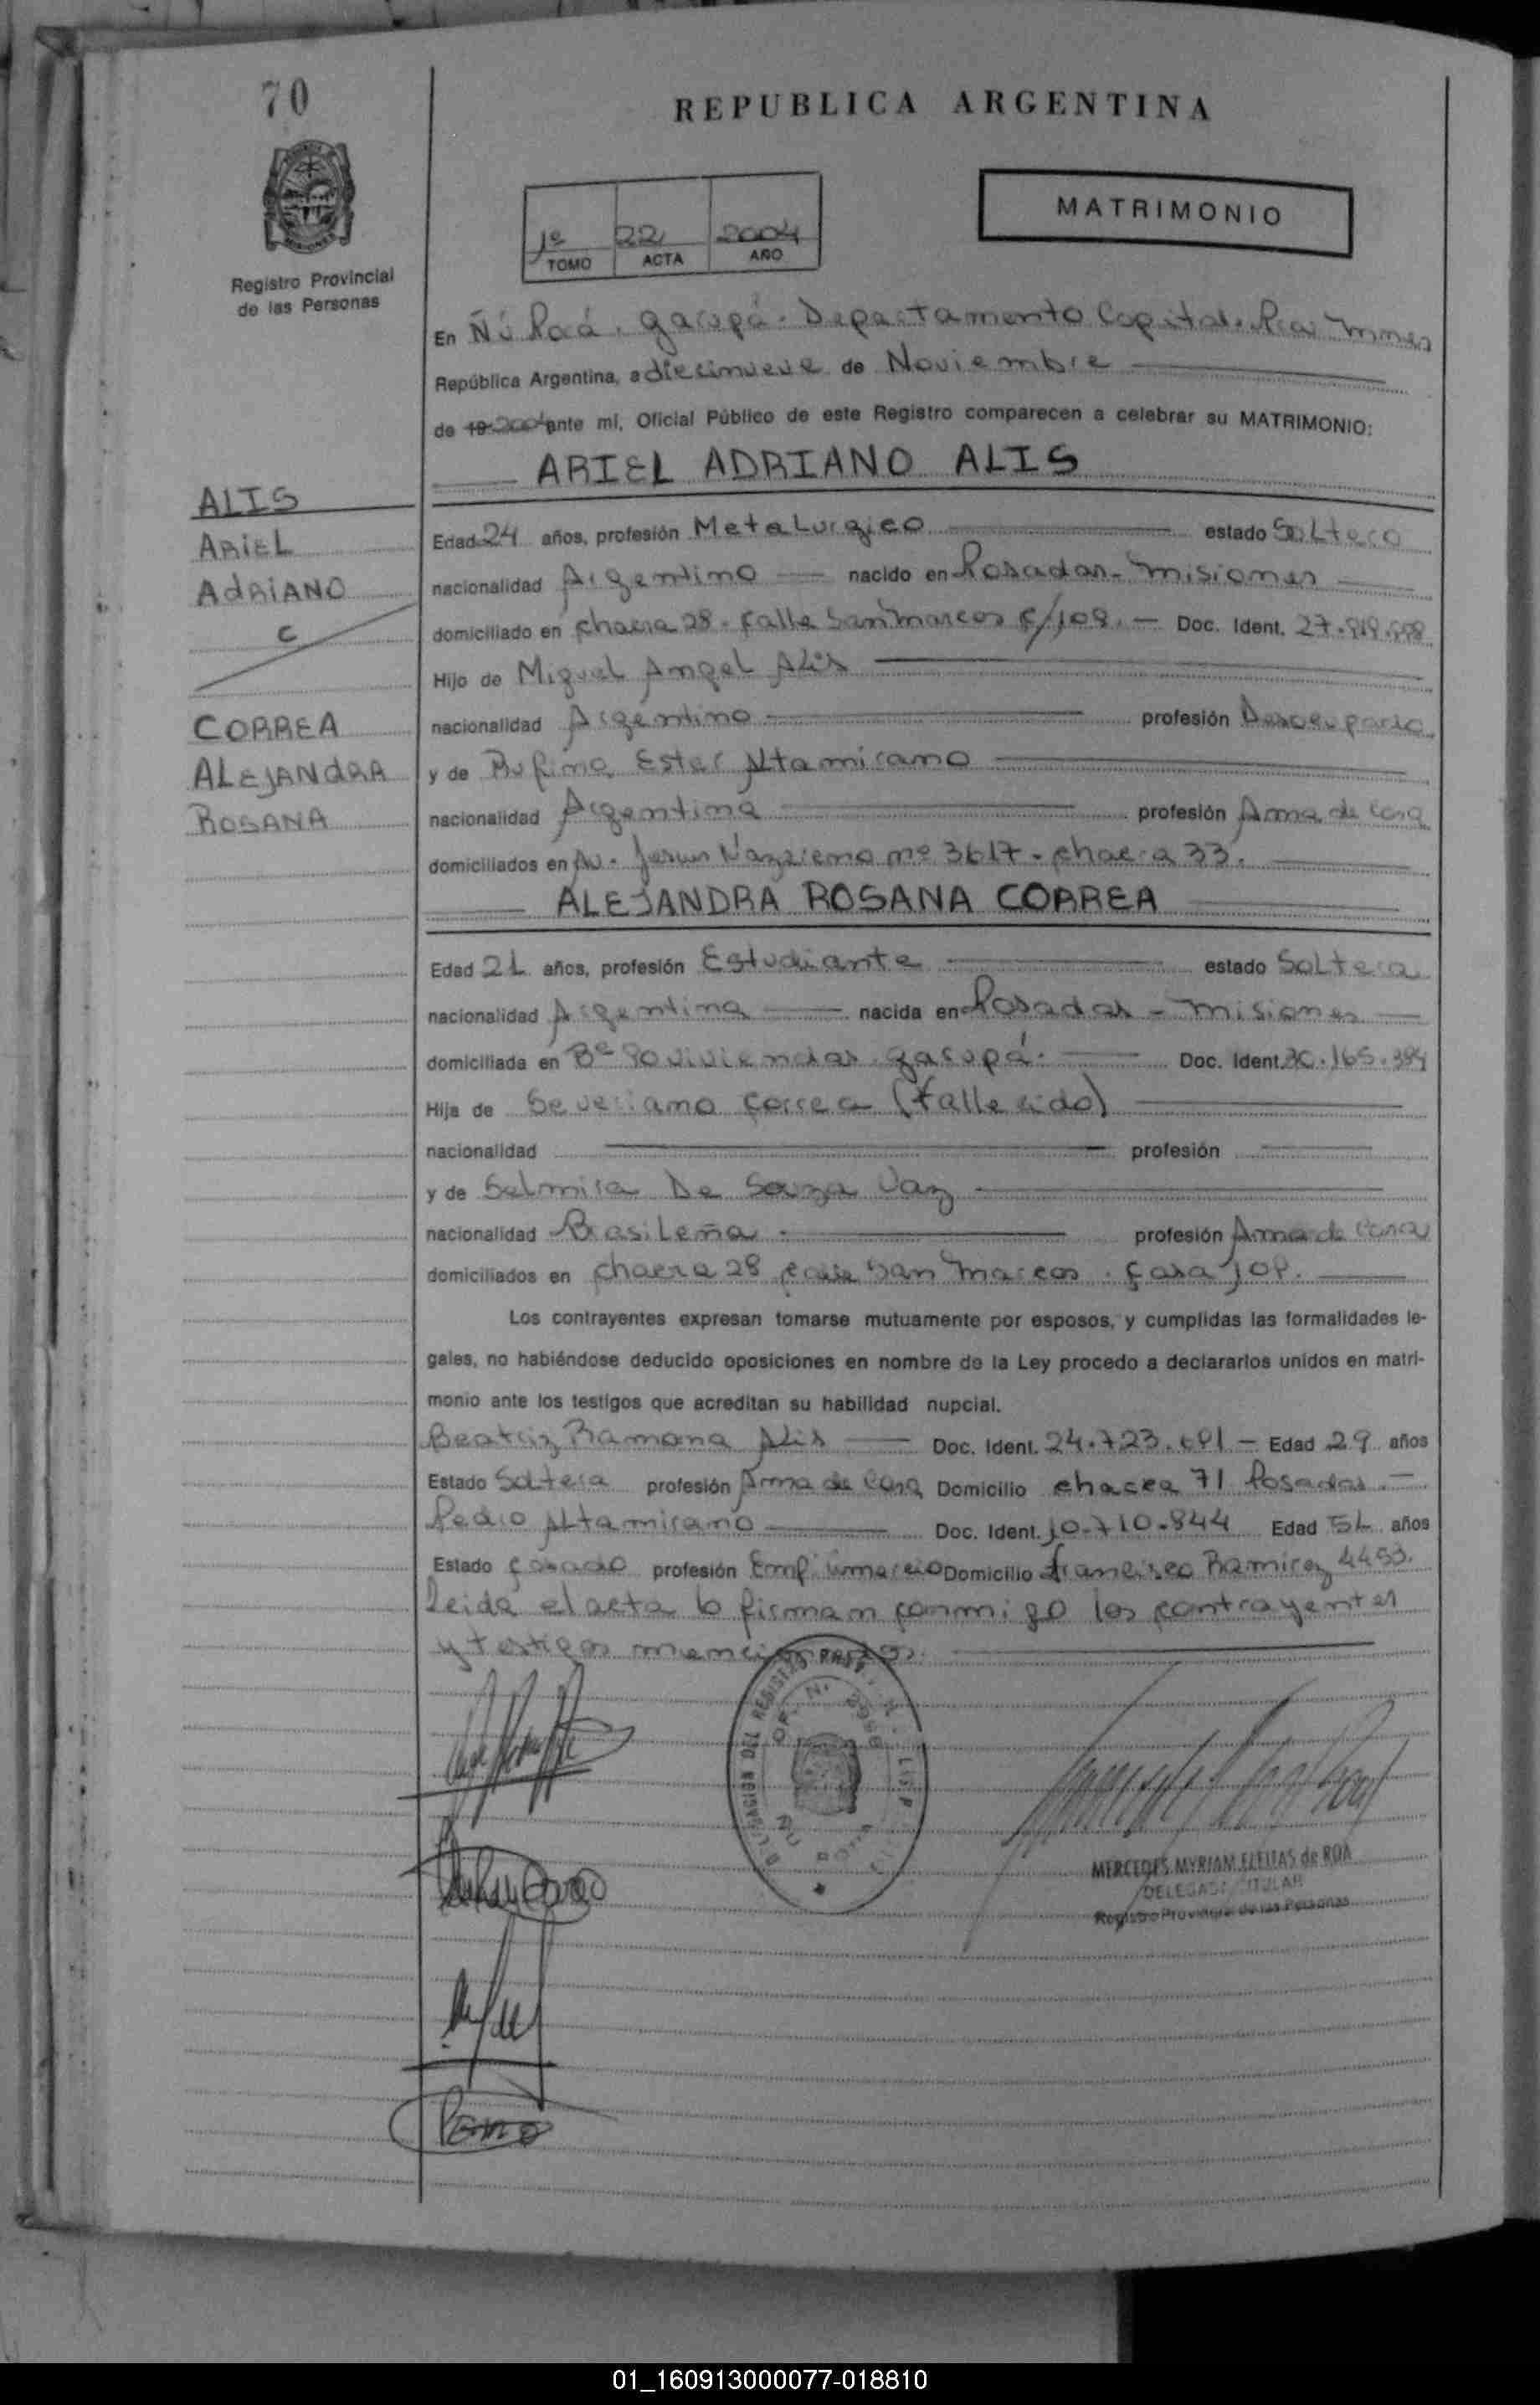 70
REPUBLICA ARGENTINA
MATRIMONIO
1º 22 2004
TOMO ACTA AÑO
Registro Provincial
de las Personas
En Ñú Porá. Garupá. Departamento Capital. Pcia Mnes
República Argentina, a diecinueve de Noviembre
de 19 2004 ante mí, Oficial Público de este Registro comparecen a celebrar su MATRIMONIO:
ARIEL ADRIANO ALIS
ALIS
ARIEL
ADRIANO
C
CORREA
ALEJANDRA
ROSANA
Edad 24 años, profesión Metalurgico estado Soltero
nacionalidad Argentino nacido en Posadas - Misiones
domiciliado en chacra 28 - calle San Marcos C/108. Doc. Ident. 27.
Hijo de Miguel Angel Alis
nacionalidad Argentino profesión Desocupado
y de Rufina Ester Altamirano
nacionalidad Argentina profesión Ama de Casa
domiciliados en Av. Jesus Nazareno nº 3617 - chacra 33.
ALEJANDRA ROSANA CORREA
Edad 21 años, profesión Estudiante estado Soltera
nacionalidad Argentina nacida en Posadas - Misiones
domiciliada en Bº 90 viviendas Garupá. Doc. Ident. 30.165.394
Hija de Severiano Correa (fallecido)
nacionalidad profesión
y de Selmira De Souza Vaz
nacionalidad Brasileña profesión Ama de Casa
domiciliados en chacra 28 calle San Marcos. Casa 108.
Los contrayentes expresan tomarse mutuamente por esposos, y cumplidas las formalidades le-
gales, no habiéndose deducido oposiciones en nombre de la Ley procedo a declararlos unidos en matri-
monio ante los testigos que acreditan su habilidad nupcial.
Beatriz Ramona Alis Doc. Ident. 24.723. Edad 29 años
Estado Soltera profesión Ama de Casa Domicilio chacra 71 Posadas.
Pedro Altamirano Doc. Ident. 10.710.844 Edad 51 años
Estado Casado profesión Emp. Comercio Domicilio Francisco Ramirez 4453.
Leida el acta la firman conmigo los contrayentes
y testigos mencionados.
DELEGACION DEL REGISTRO
MERCEDES MYRIAM FLEITAS de ROA
DELEGADA TITULAR
Registro Provincial de las Personas
01_160913000077-018810